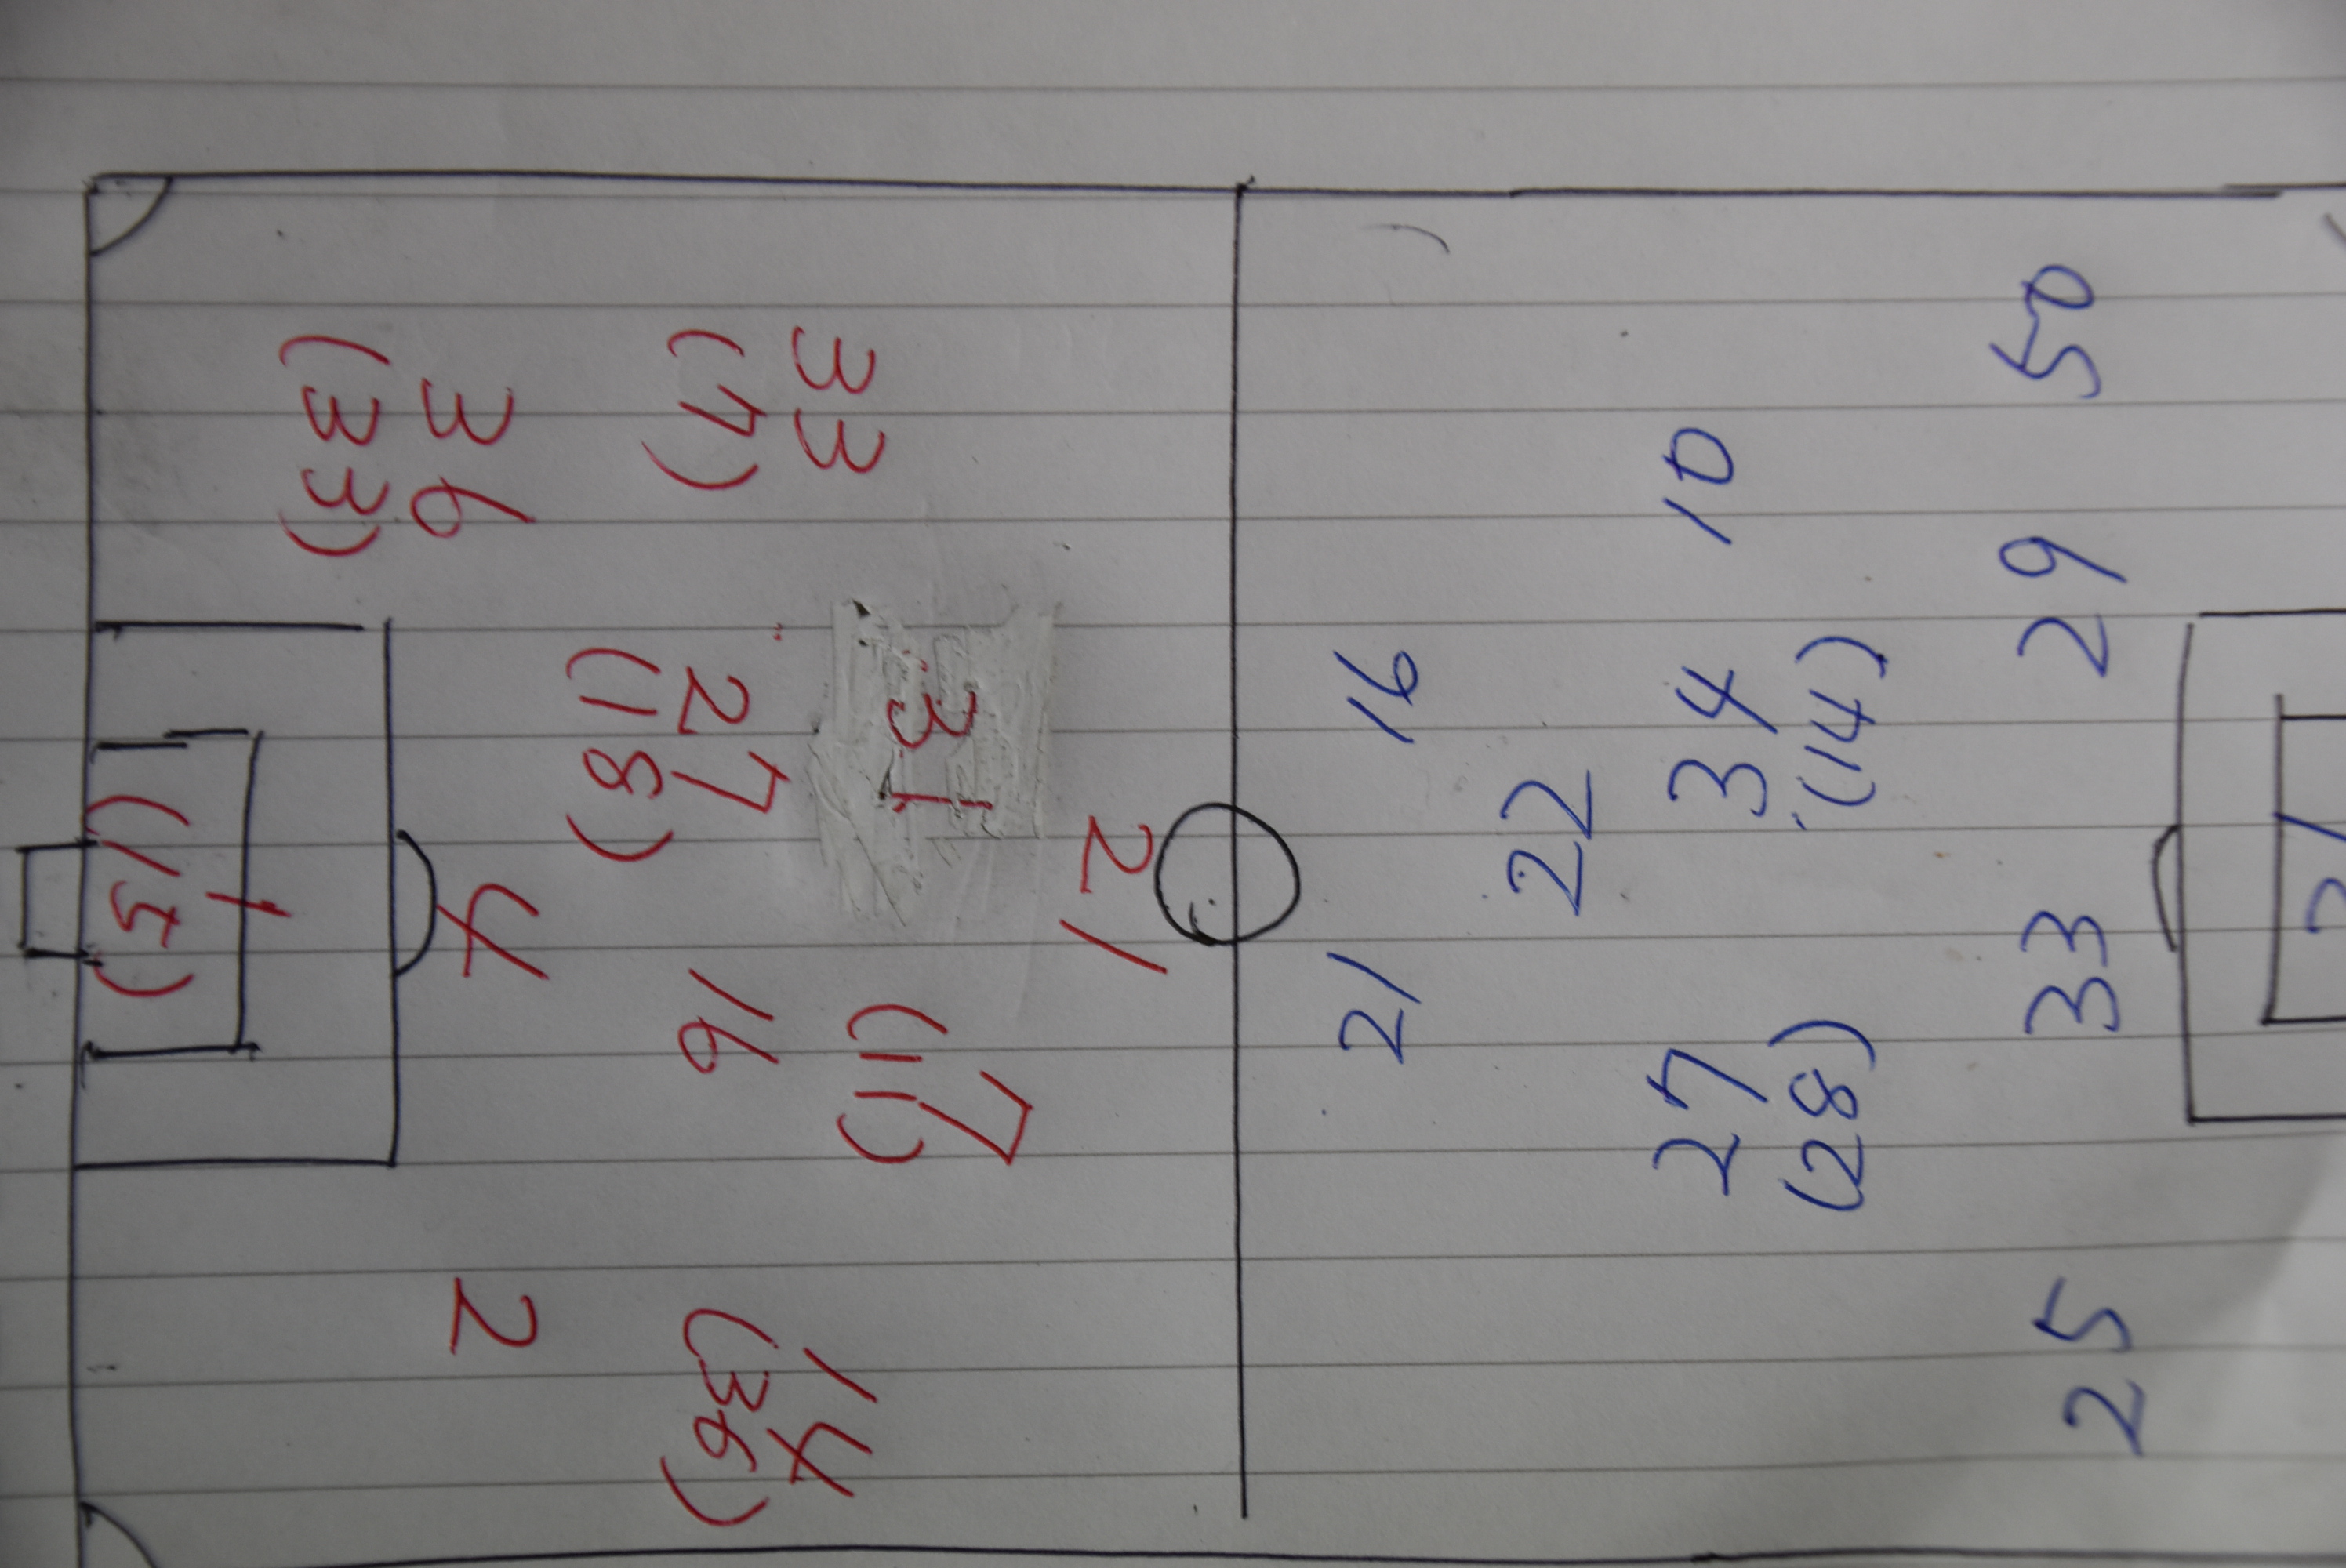 21
31
7
(11)
33
(7)
27
(18)
16
14
(36)
36
(33)
4
2
1
(15)
21
16
22
27
(28)
34
(14)
10
25
33
29
50